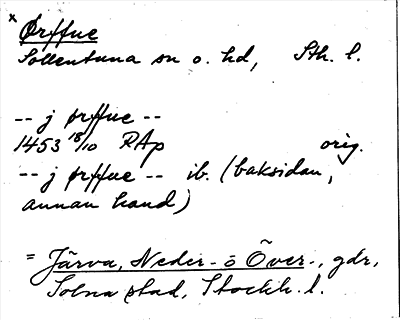 x
Ørffue
Sollentuna sn o. hd, Sth. l.
-- j ørffue --
1453 18/10 RAp orig.
-- j ørffue -- ib. (baksidan,
annan hand)
= Järva, Neder- o Över-, gdr,
Solna stad, Stockh. l.